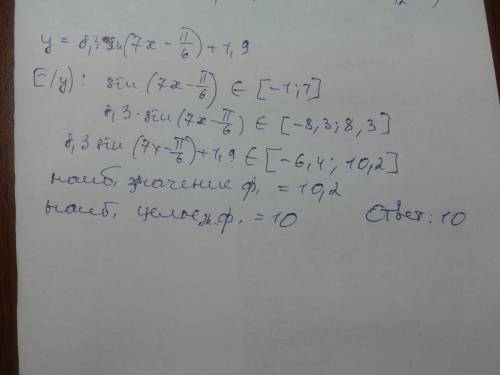 y = 8,3 sin(7x - π/6) + 1,9
E(y): sin (7x - π/6) ∈ [-1;1]
8,3 · sin(7x - π/6) ∈ [-8,3; 8,3]
8,3 sin(7x - π/6) + 1,9 ∈ [-6,4; 10,2]
наиб. значение ф. = 10,2
наиб. целое зн. ф. = 10 Ответ: 10